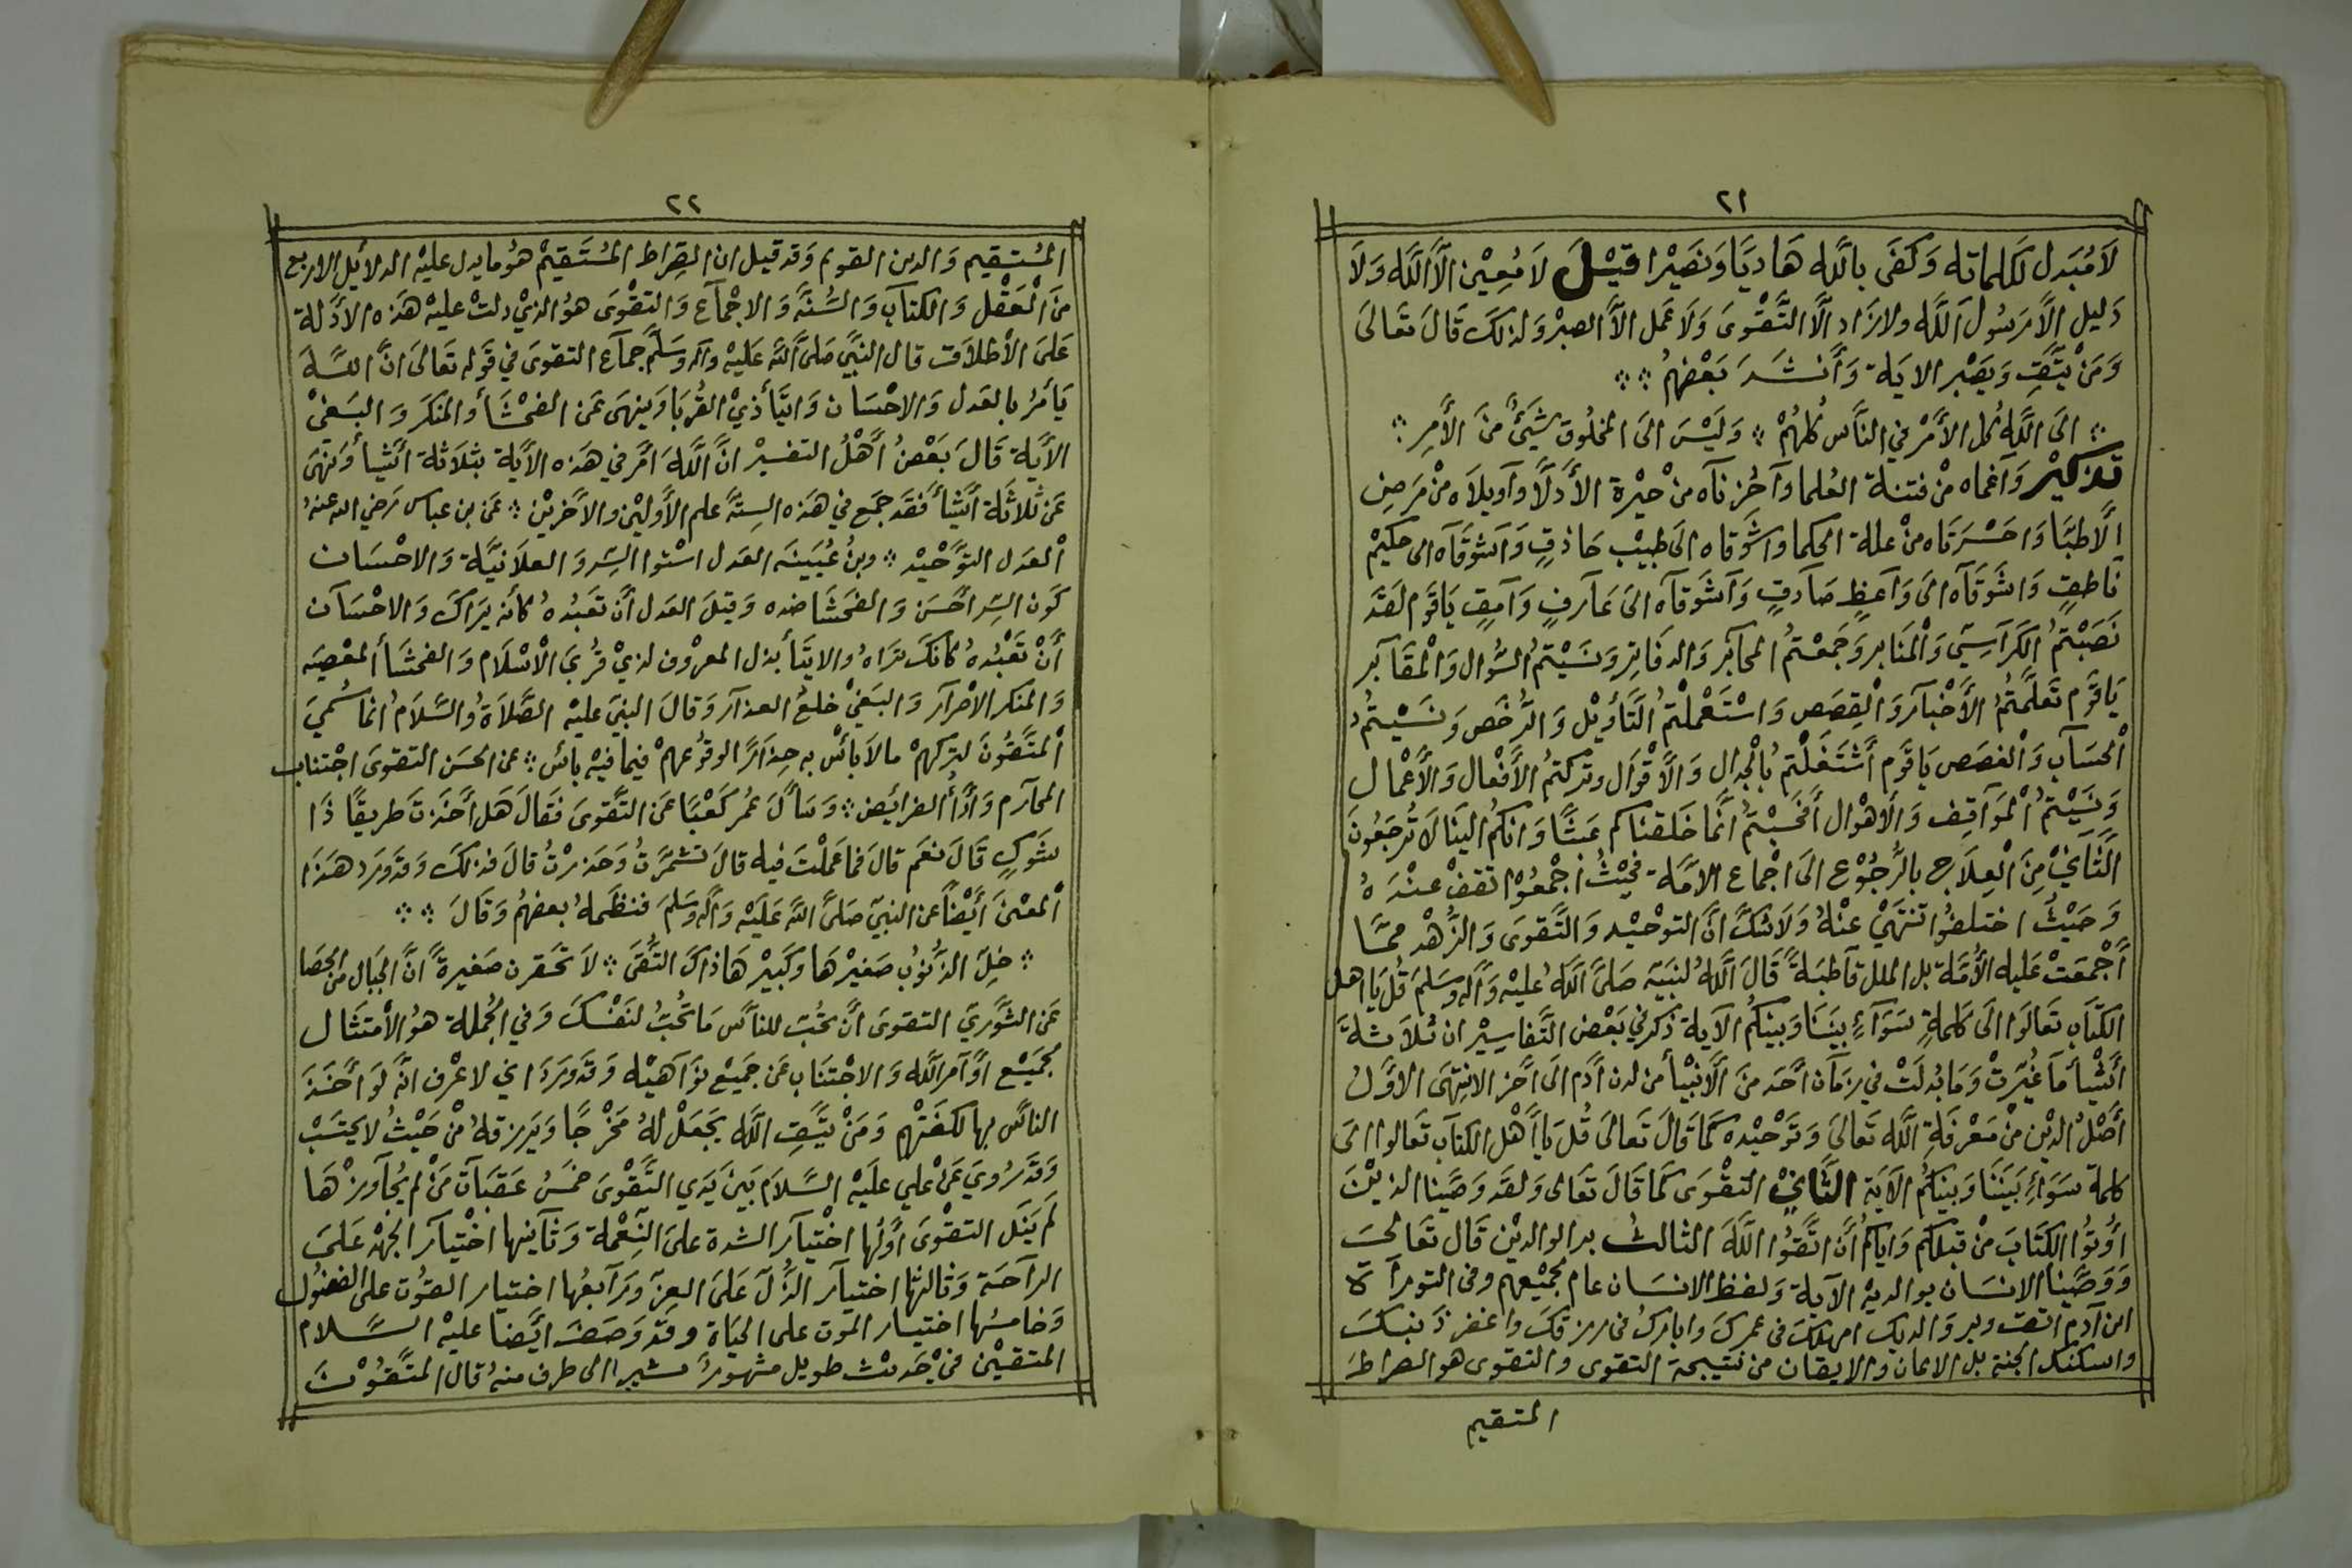 ٢١
لَا مُبَدل لكلماته وَكَفَى باللَّه هَاديًا وَنَصيْرا قيْلَ لَا مُعِيْن الَّا اللَّه وَلَا
دَليل الَّا رسُولَ اللَّه ولا زَاد الَّا التَّقْوىَ وَلَا عَمل الاَّ الصبْر وَلذلكَ قَالَ تَعَالىَ
وَمَنْ يَتَّقِ وَيَصْبر الايَة وَأنشَدَ بَعْضهُمُ ؞ ؞
؞ الىَ اللَّه كُل الأمْر في النَّاس كُلهُمْ ؞ وَلَيْسَ الىَ المخلُوق شَيَئٌ مِّنَ الأَمِر ؞
تذكيْر وَآغماه منْ فتنة العُلما وآحُزنآه منْ حيْرة الأدلَّا وآويلَاه منْ مَرَض
الَّاطبَّا وَاحَسْرَتاه منْ علة الحكما واشَوقاه الىَ طبيْب حَاذقٍ وَآشوقَاه الى حكيْم
نَاطقٍ وَاشَوقَآه الىَ وَآعظٍ صَآدقٍ وَآشَوقآه الىَ عَآرفٍ وَآمقٍ يَا قَوم لَقَد
نَصَبْتمُ الكَرَآسِيّ وَالْمنَابر وَجَمَعْتمُ المحآبَر وَالدفَاتِر وَنسَيْتمُ السُّوال وَالْمقَآبَر
يَا قَوَم تعَلَّمتُمُ الأَخْبآر وَالْقِصَص وَاسْتَعْملْتمُ التَّأويْل وَالرُّخَص وَنَسَيْتمُ
الْحسَآب وَالْغصَص يَا قَوم أَشتَغَلْتم بُالْجدالِ وَالَاقْوَال وتَركتمُ الأَفْعال وَالأَعْمال
وَنسَيْتمُ الْموَآقِف وَالأهْوَال أَفَحَسبْتمُ انَّما خَلَقنَاكم عَبَثًا وَانكمُ الينَا لَا تُرجَعُونَ
الَّثآنيْ مِنَ الْعِلَاج بالرُّجوُع الىَ اجْماع الامَّة فحَيْثُ اجْمَعُوا تقفْ عنْدَهُ
وَحَيْثُ اختلفُوا تنتَهيْ عنْهُ وَلَا شكَّ انَّ التوْحيْد وَالتَّقوىَ وَالزُّهْد ممَّا
أَجْمعَتْ عَليه الأمَّة بل الملل قآطبَةً قَالَ اللَّهُ لنبيّه صَلىَّ اللَّهُ عَليْه وَآله وَسَلمَ قُل يَا اهل
الكتَآب تعَالَوا الىَ كلمَةٍ سَوَآءٍ بينَنَا وَبَينكمُ الآيَة ذكرَ في بَعْض التَّفاسيْر ان ثلَاثةً
أَشْيَأ مَا غُيّرَتْ وَمَا بُدلَتْ في زمَآن أحَد منَ الَّانبيْأ من لدن آدَم الَى آخَر الانتهَى الاوَّل
أصْلُ الدّيْن منْ مَعْرفَةِ اللَّه تَعَالىَ وَتَوْحيْده كمَا قَالَ تَعَالىَ قُلَ يَا أَهْل الكتآب تَعَالوا الىَ
كلمة سَوَآءٍ بَيَننَا وَبَينكُم الآيَة الثَّانيْ التقْوىَ كمَا قَالَ تَعَالى وَلقَد وَصَّيْنا الذيْنَ
أوُتوُا الكتَابَ منْ قبلكم وَايَاكمُ أَن اتَّقوُا اللَّهَ الثالثُ بر الوالديْن قَال تَعَالىَ
وَوَصَّيْنا الانسَان بوَالديْه الآيَة وَلفظ الانسَان عام لجميْعهم وفى التوراة
ابن آدم اتقِ وبر وَالديك امهلك فى عمركَ وابارك فى رزقكَ واغفر ذَنبكَ
واسكنك الجنة بل الايمان والايقان من نتيجة التقوى والتقوى هو الصراط
المتقيم
٢٢
المُستقيم وَالدين القويم وَقد قيل ان الصِّراط المُستَقيْم هوُ ما يدل عليْه الدلَائل الاربع
منَ الْعَقْل وَالكتآب وَالسُّنَّة وَالاجْمآع وَالتقْوَى هوُ الذيْ دلتْ عليْه هَذه الأدَلة
عَلىَ الأطلاقْ قال النبَيّ صَلىَّ اللَّه عَليْه وآله وَسَلَّم جمآع التقوَى في قوَله تعَالىَ انَّ اللَّهَ
يَأمُرُ بالعَدل وَالاحْسَان وَايتَأ ذيْ القُربَا وَينهَى عَن الفحْشَأ والمنكَر وَالبَغيْ
الآيَة قَالَ بَعْضُ أَهْلُ التفسيْر انَّ اللَّهَ امَر في هَذه الأيَة بثلَاثة اشَيا وَنهىَ
عَن ثلَاثَة أشيَأ فقَد جمَع في هَذه السِتَّة علم الأَوليْن والأَخَريْن ؞ عَن بن عباس رَضي الله عنهُ
الْعدَل التوَّحيْد ؞ وبنُ عُيَينَه العَدل اسْتوا السِّر وَالعلَانيَّة وَالاحْسَان
كَون السِّر احْسَن وَالفحَشَا ضده وَقيَل العَدل أَن تعَبُدهُ كأنه يَرَاكَ وَالاحْسَآن
أَنْ تَعْبُدهُ كأنكَ تَرَاهُ والايتَأ بذل المعرْوف لذيْ قُربَى الْاسْلَام وَالفحشَأ المعْصيَه
وَالمنكر الاصْرَآر وَالبَغيْ خلعُ العذآر وَقالَ النبيَ عليْه الصَّلَاةُ وَالسَّلَامُ انما سُميَ
الْمتقُونَ لتركهمْ مالَا بائسْ به حِذَآرًا لوقوُعهمْ فيما فيْه بأس ؞ عن الحسَن التقوىَ اجْتناب
المحآرم وَأدَأ الفرايَض ؞ وَسَأَلَ عُمر كَعْبَا عَن التَّقوىَ فقَالَ هَل أخَذتَ طريقًا ذَا
شوكٍ قَالَ نعَم قالَ فما عَملْتَ فيه قالَ تشمَّرتُ وَحَذرْتُ قالَ فذلكَ وَقدَ ورَد هَذا
الْمعْنىَ أيَضْاً عن النبيّ صَلىَّ اللَّه عَلَيْه وَآله وَسَلمَ فنظَمهُ بعضهُم وَقَالَ ؞ ؞
؞ خلّ الذنُوبُ صَغيرْهَا وكَبيْرهَا ذاكَ التُّقَى ؞ لاَ تَحقرن صَغيرةً انَّ الجبَال من الحَصَا
عَن الثّوَريّ التقوىَ أنَ تحبّ للنَآس مَا تحُبُ لنَفْسكَ وَفي الجُملة هوُ الأمتثَال
لجَميَع اوَآمر اللَّه وَالاجْتنَاب عَن جَميَع نوَآهَيْه وَقَد وَردَ اني لاعْرف آيَه لَو أخَذَ
النَآس بها لكفَتْهم وَمَنْ يتَّقِ اللَّه يَجَعَلْ لهُ مَخرْجًا وَيَرزقهُ منْ حَيْثُ لا يحتَسْب
وَقَد رُويَ عَنْ عَلي عَليَه السَّلَام بَينَ يَدَي التَّقْوىَ خمَسُ عَقبَآت مَنْ لَم يُجَآوزْهَا
لَم يَنَل التقْوىَ أوَلهُا اخْتيَآر الشدة علىَ النّعْمة وَثآنيها اخْتيَآر الجهْد عَلىَ
الرآحَة وَثالثهَا اختيَآر الذُلّ عَلىَ العِزّ وَرَآبعُها اختيار القوُت على الفضوُل
وَخامسُها اختيار المَوت على الحيَاة وقد وَصَفَ أيَضا عليْه السَّلام
المتقيْن فيْ حَديث طويل مشهور نشير الى طرف منه قال المتَّقوُنَ